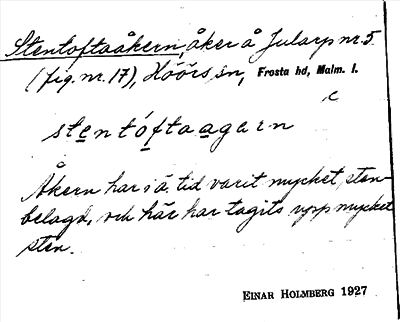 Stentoftaåkern, åker å Jularp nr. 5
(fig. nr. 17), Höörs sn, Frosta hd, Malm. l.
stentóftaagarn
Åkern har i å. tid varit mycket sten-
belagd, och här har tagits upp mycket
sten.
EINAR HOLMBERG 1927